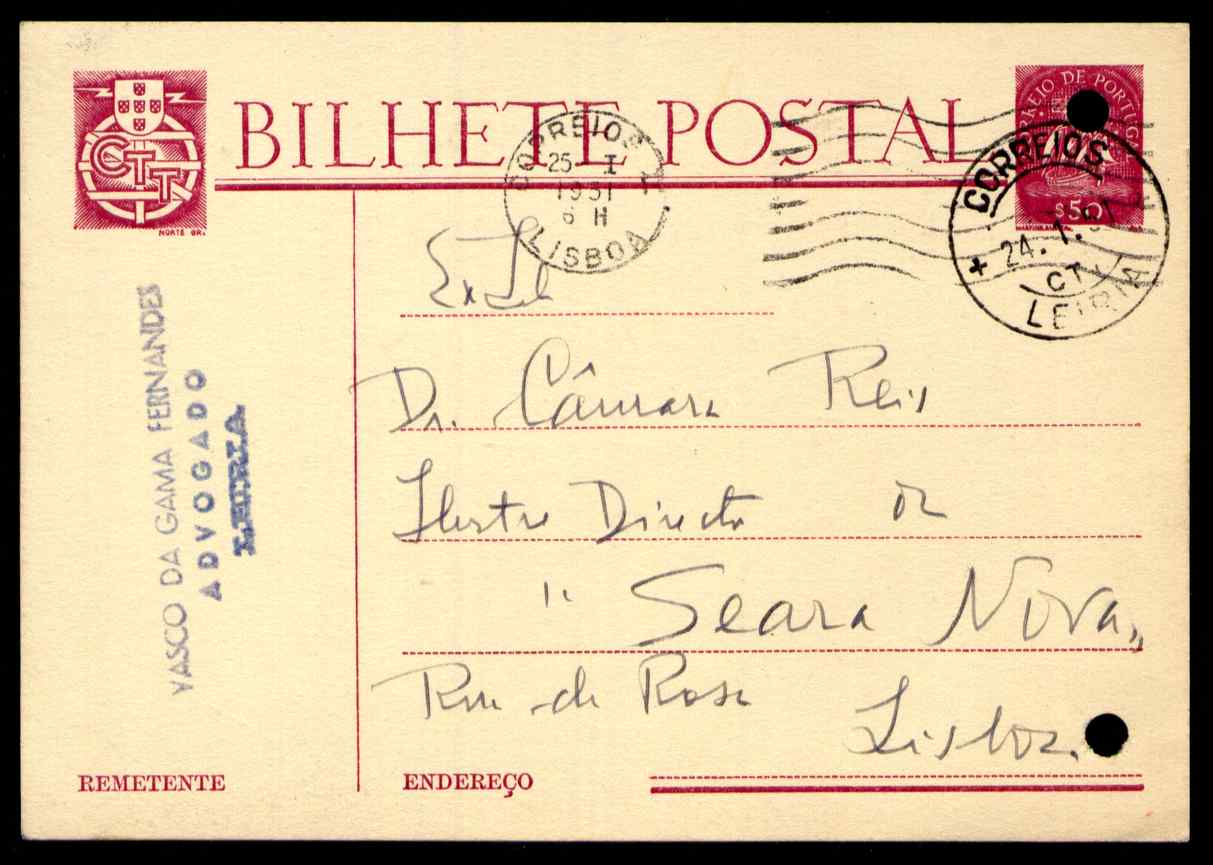 BILHETE POSTAL
CTT
NORTE GR.
CORREIO DE PORTUGAL
$50
CORREIOS
25 I
1951
6 H
LISBOA
CORREIOS
24. 1. 51
CTT
LEIRIA
VASCO DA GAMA FERNANDES
ADVOGADO
LEIRIA
Dr. Câmara Reis
Ilustre Director
"Seara Nova"
Rua da Rosa
Lisboa.
REMETENTE
ENDEREÇO